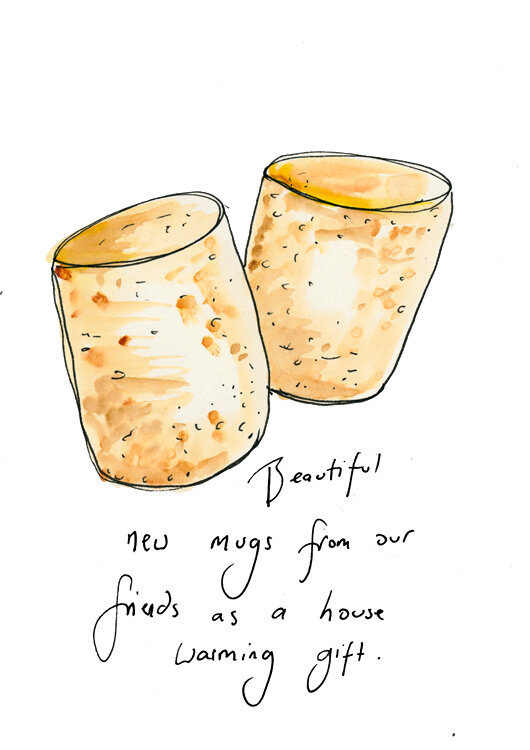 Beautiful
new mugs from our
friends as a house
warming gift.